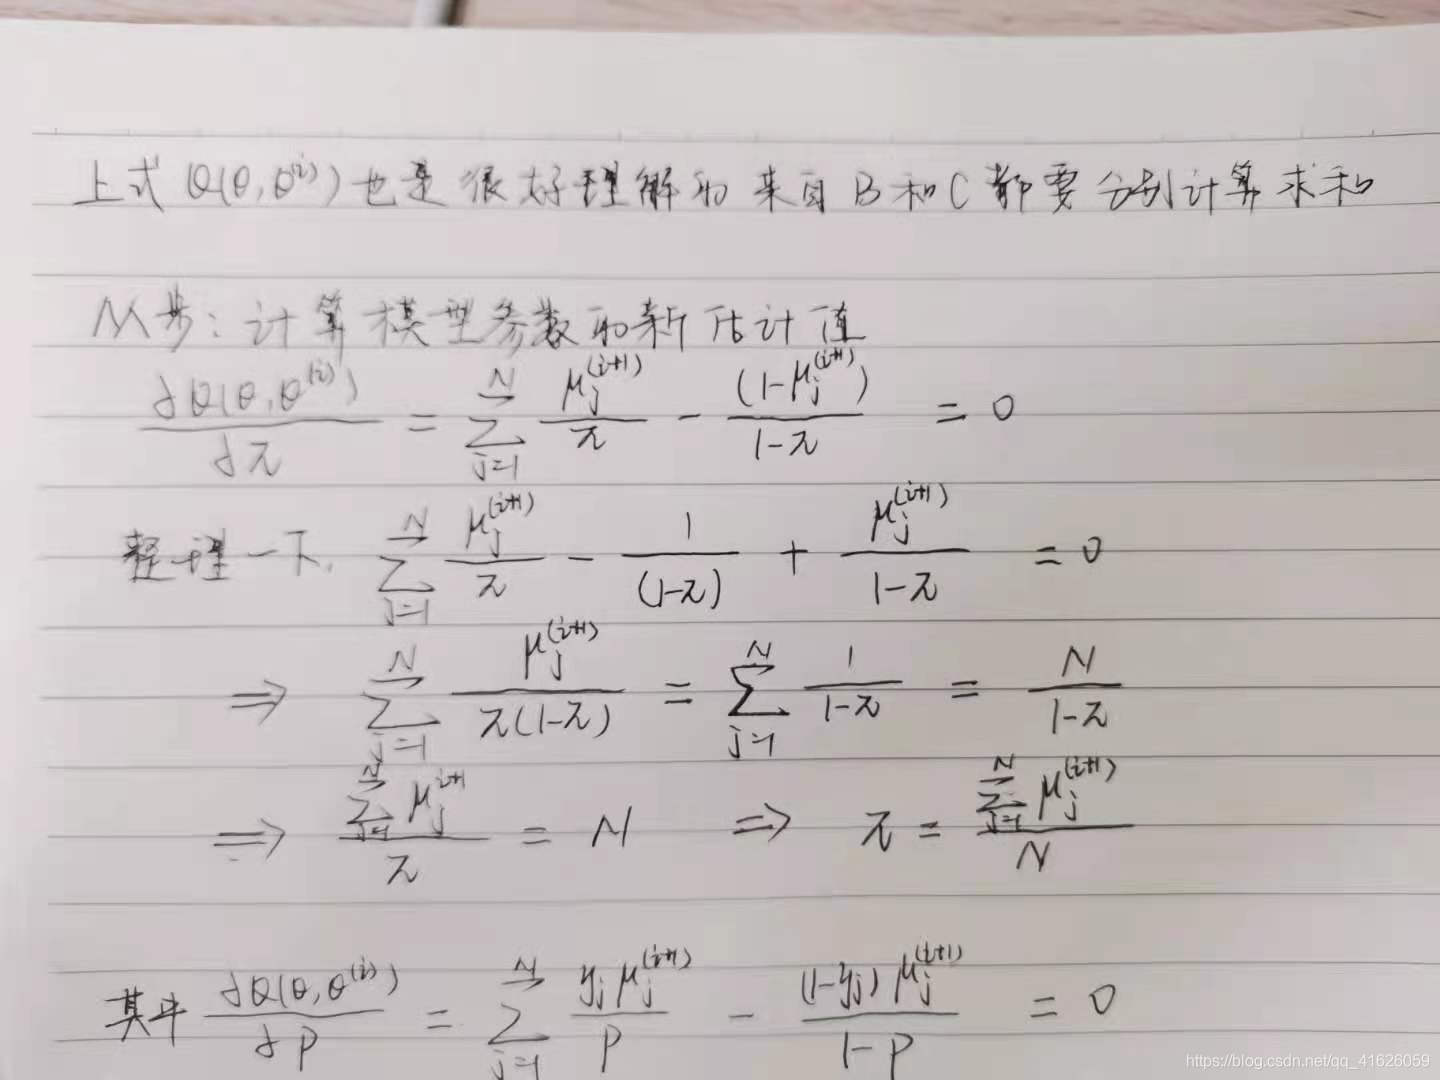 上式 Q(θ,θ^(i)) 也是很好理解的 来自B和C都要分别计算求和
M步：计算模型参数的新估计值
∂Q(θ,θ^(i))/∂π = ∑_{j=1}^{N} μ_j^(i+1)/π - (1-μ_j^(i+1))/(1-π) = 0
整理一下, ∑_{j=1}^{N} μ_j^(i+1)/π - 1/(1-π) + μ_j^(i+1)/(1-π) = 0
⇒ ∑_{j=1}^{N} μ_j^(i+1)/(π(1-π)) = ∑_{j=1}^{N} 1/(1-π) = N/(1-π)
⇒ ∑_{j=1}^{N} μ_j^{i+1}/π = N ⇒ π = ∑_{j=1}^{N} μ_j^(i+1)/N
其中 ∂Q(θ,θ^(i))/∂p = ∑_{j=1}^{N} y_j μ_j^(i+1)/p - (1-y_j) μ_j^(i+1)/(1-p) = 0
https://blog.csdn.net/qq_41626059